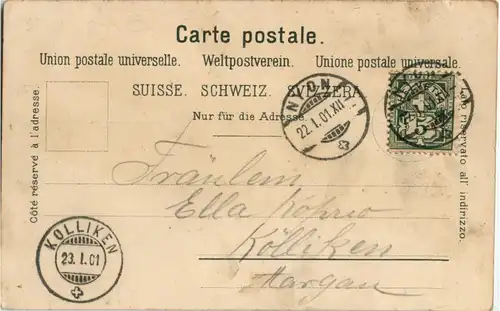 Carte postale.
Union postale universelle. Weltpostverein. Unione postale universale.
SUISSE. SCHWEIZ. SVIZZERA.
Nur für die Adresse.
Côté réservé à l'adresse.
riservato all' indirizzo.
NYON
22.I.01.XII
5
Fräulein
Ella
Kölliken
Aargau.
KÖLLIKEN
23.I.01